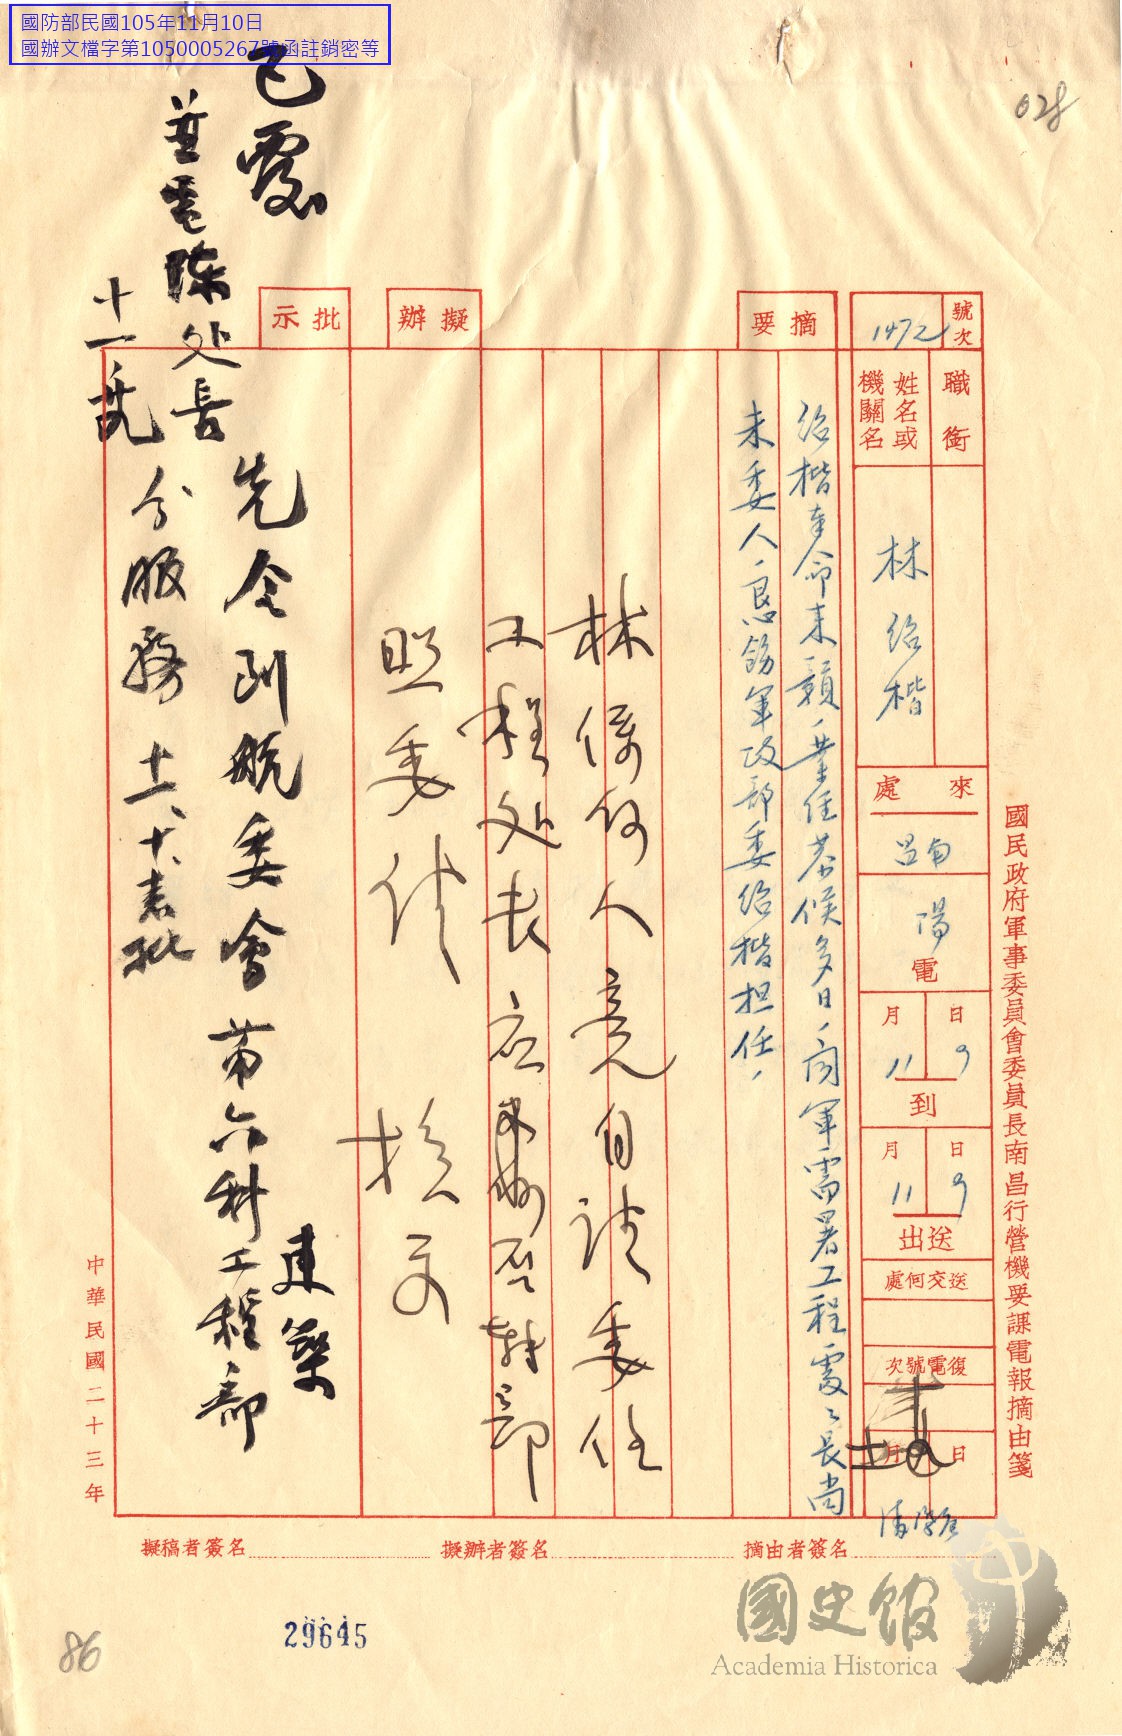 國防部民國105年11月10日
國辦文檔字第1050005267號函註銷密等
028
國民政府軍事委員會委員長南昌行營機要課電報摘由箋
號次
1472
職銜
姓名或機關名
林紹楷
來處
南昌
陽電
11月9日到
11月9日送出
送交何處
復電號次
月日
摘要
紹楷奉命来贛、業經恭候多日、聞軍需署工程處處長尚
未委人、懇飭軍政部委紹楷担任、
擬辦
林係何人竟自請委任
工程处长应
部
照委
批示
已覆
並電陳处長
十一
先令到航委會第六科工程部
建築
分服務 十一、十、
批
中華民國二十三年
摘由者簽名
擬辦者簽名
擬稿者簽名
29645
86
國史館
Academia Historica